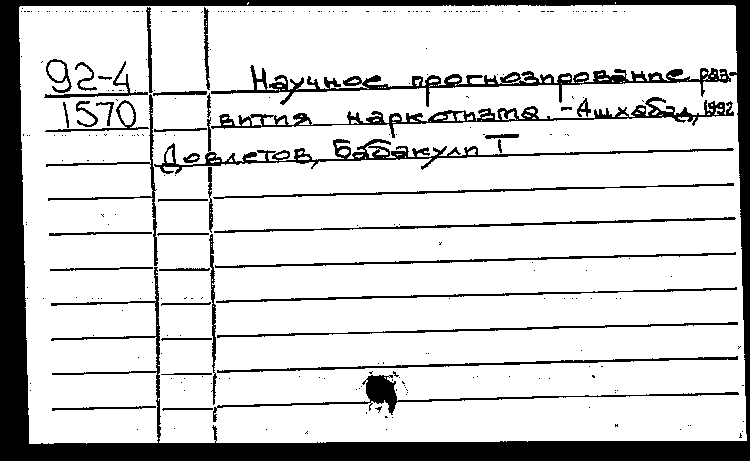 92-4 Научное прогнозирование раз-
1570 вития наркотизма. - Ашхабад, 1992
Довлетов, Бабакули Т